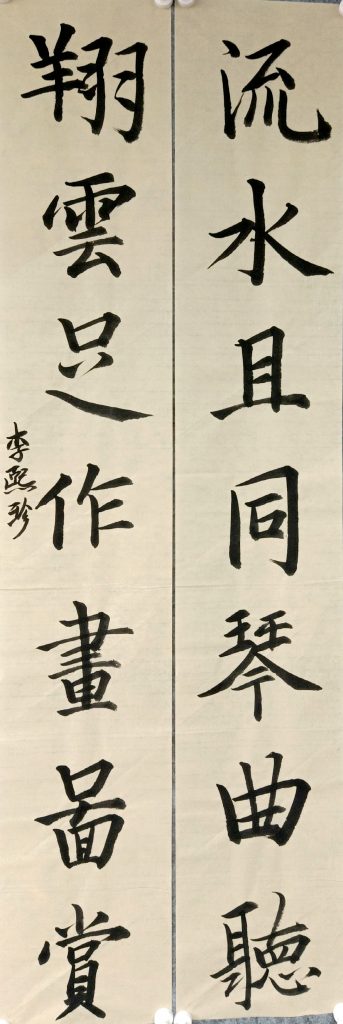 流水且同琴曲聽
翔雲足作畫啚賞
李熙珍